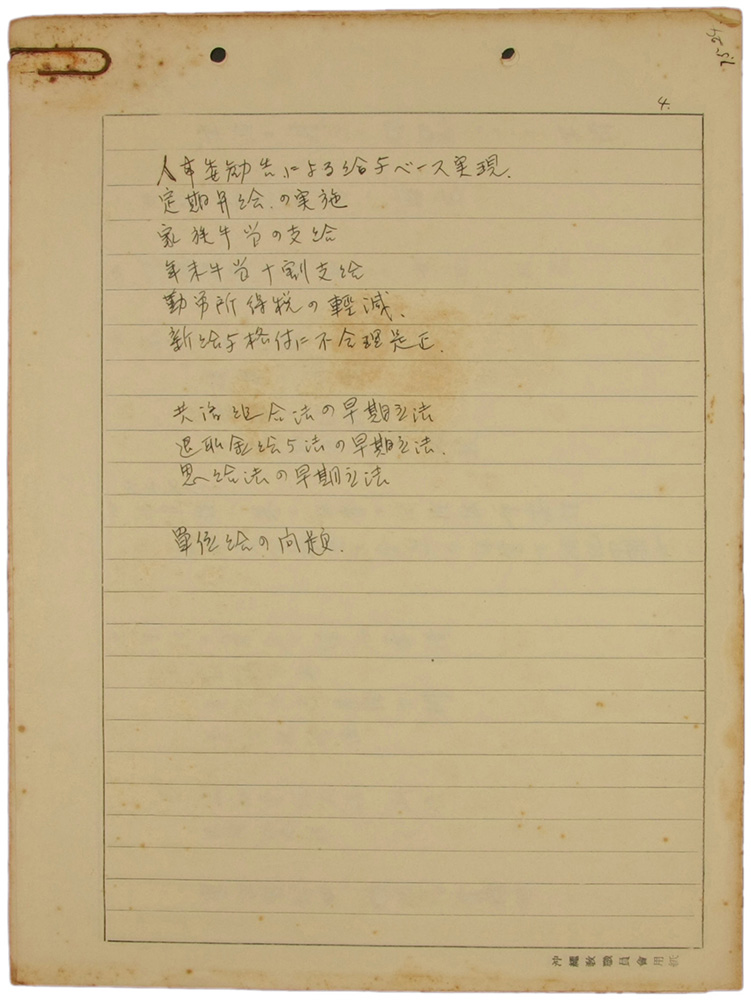 4.
人事委勧告による給与ベース実現.
定期昇給.の実施
家族手当の支給
年末手当十割支給
勤労所得税の軽減.
新給与格付に不合理是正.
共済組合法の早期立法
退职金給与法の早期立法.
恩給法の早期立法
単位給の问題.
沖繩敎職員會用紙